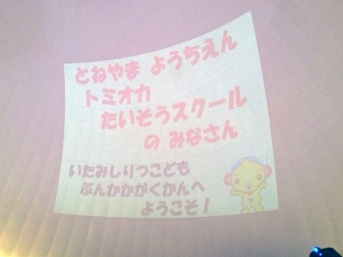 とねやま ようちえん
トミオカ
たいそうスクール
の みなさん
いたみしりつこども
ぶんかかがくかんへ
ようこそ！